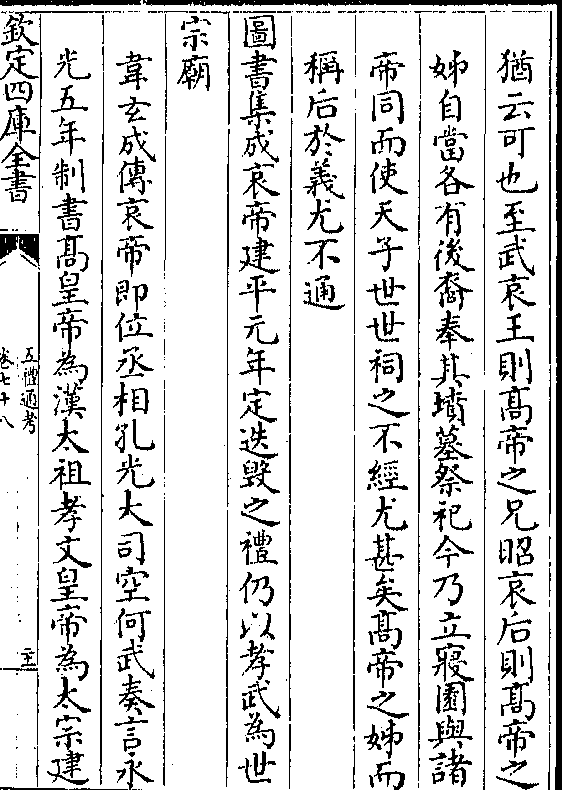 猶云可也至武哀王則髙帝之兄昭哀后則髙帝之
姊自當各有後裔奉其墳墓祭祀今乃立寢園與諸
帝同而使天子世世祠之不經尤甚矣髙帝之姊而
稱后於義尤不通
圖書集成哀帝建平元年定迭毀之禮仍以孝武為世
宗廟
韋玄成傳哀帝即位丞相孔光大司空何武奏言永
光五年制書髙皇帝為漢太祖孝文皇帝為太宗建
欽定四庫全書
五禮通考
卷七十八